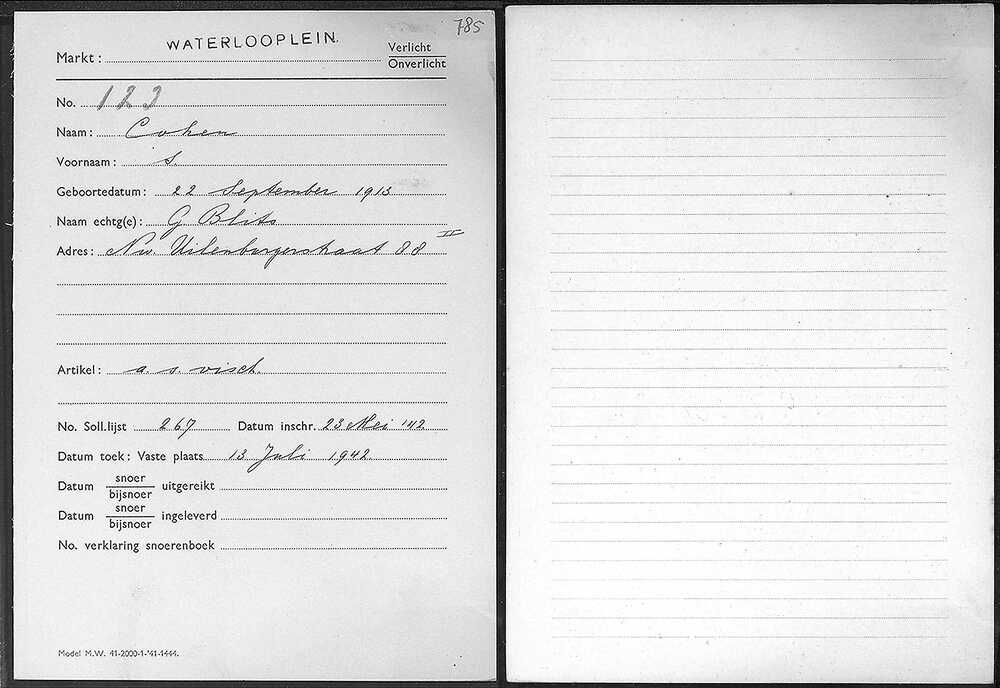 785
Markt: WATERLOOPLEIN. Verlicht
Onverlicht
No. 123
Naam: Cohen
Voornaam: S.
Geboortedatum: 22 September 1913
Naam echtg(e): G Blits
Adres: Nw. Uilenburgerstraat 88 II
Artikel: a. s. visch.
No. Soll.lijst 267 Datum inschr. 23 Mei '42
Datum toek: Vaste plaats 13 Juli 1942.
Datum snoer
bijsnoer uitgereikt
Datum snoer
bijsnoer ingeleverd
No. verklaring snoerenboek
Model M.W. 41-2000-1-'41-1444.